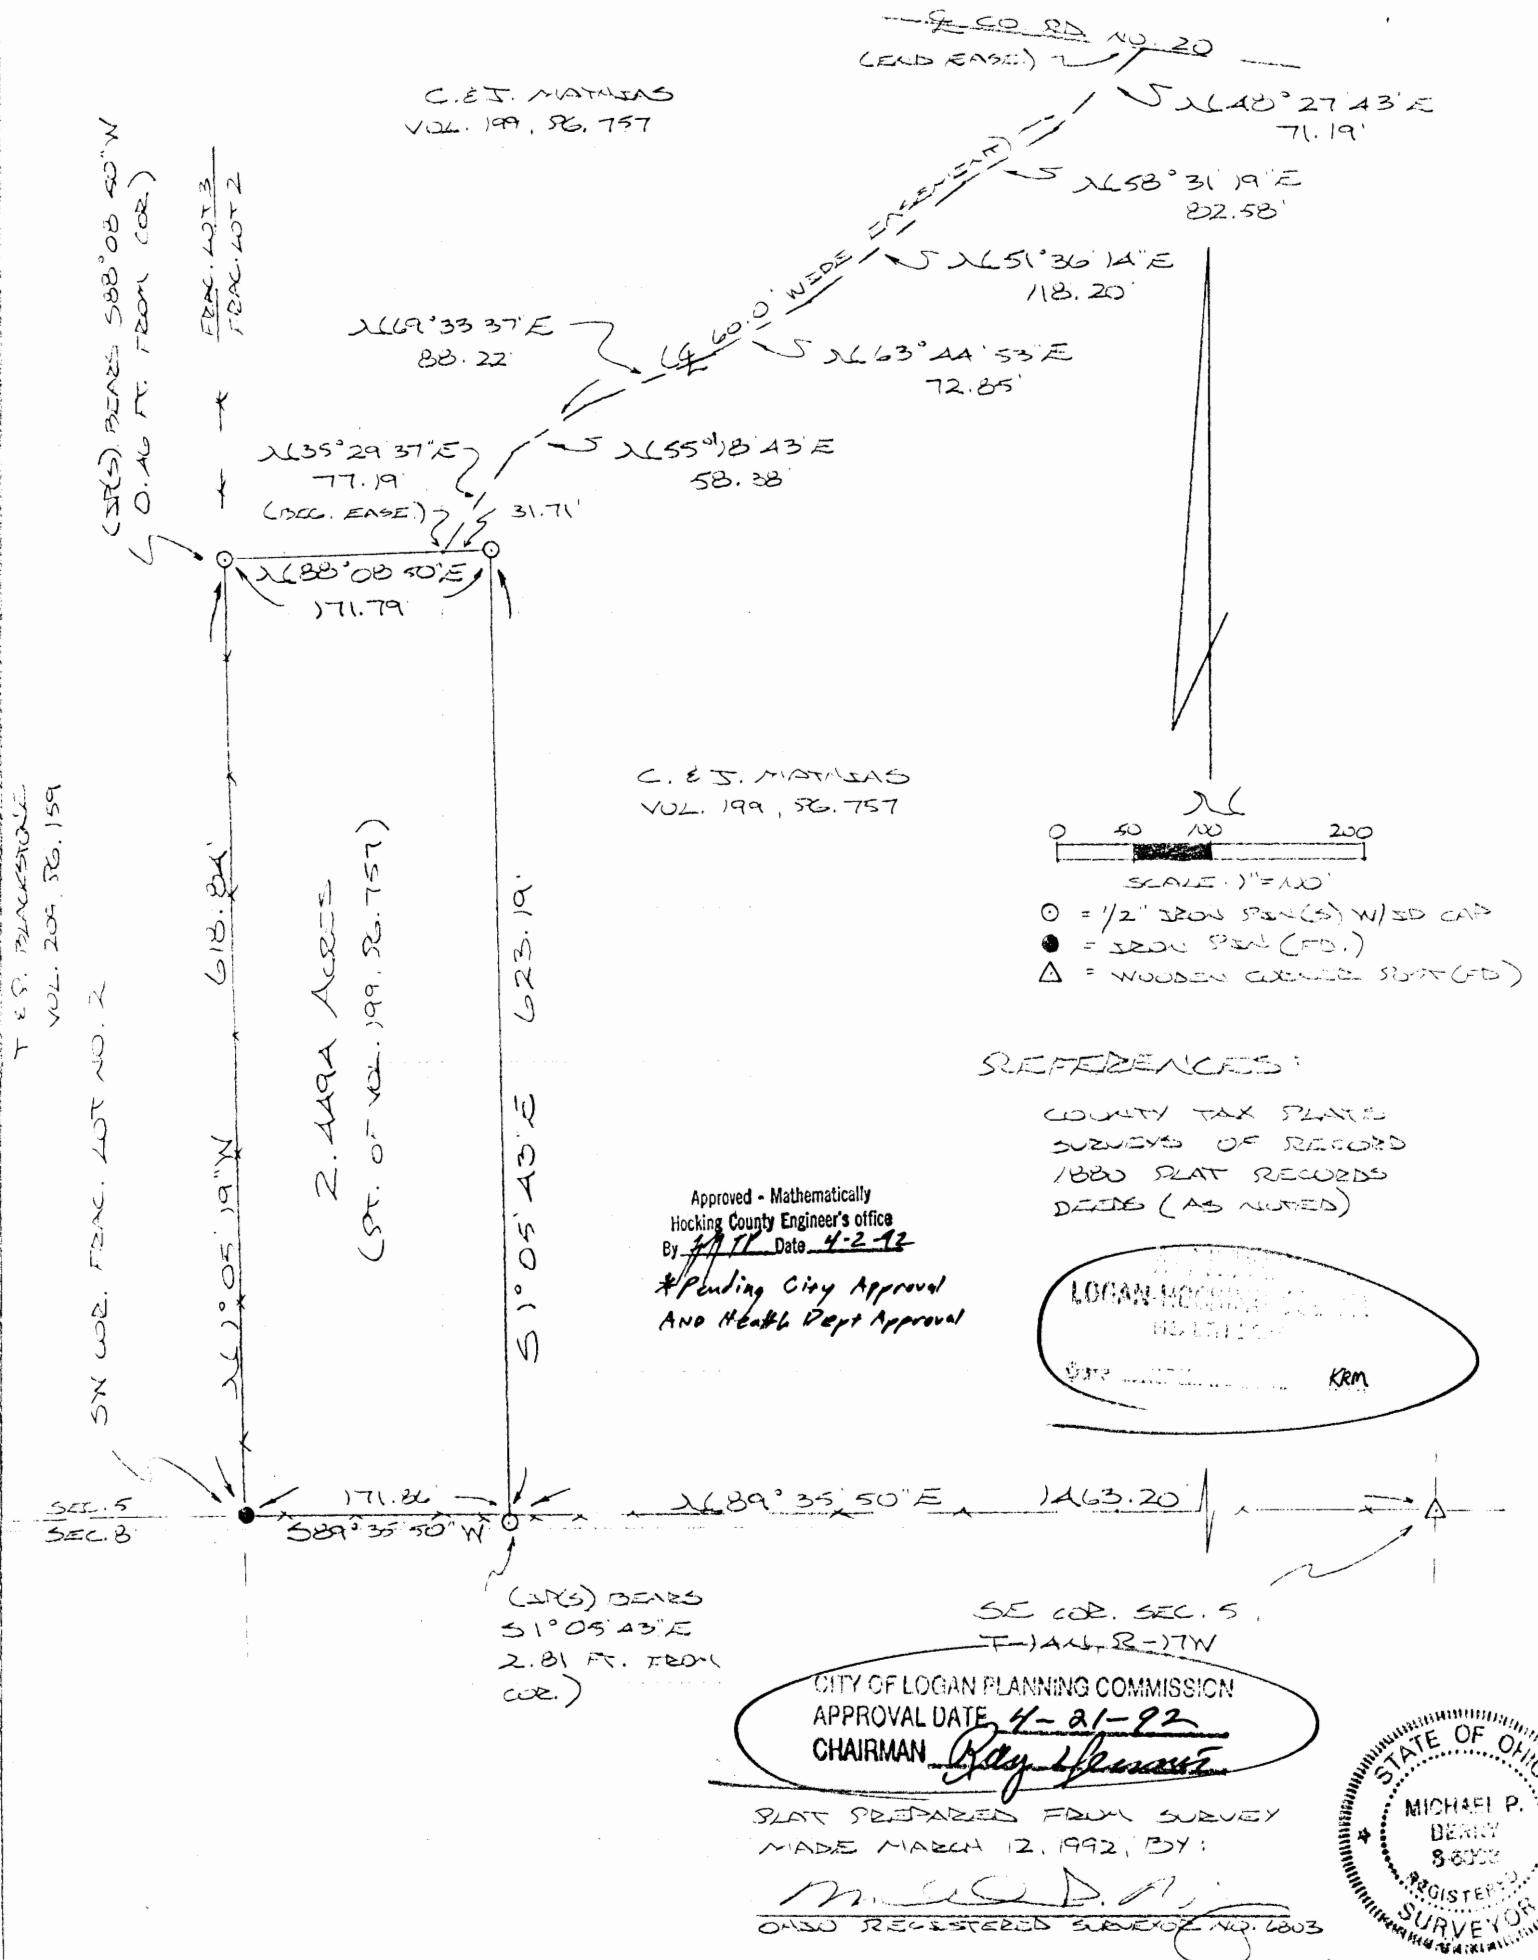 ℄ CO. RD. NO. 20
(END EASE.)
C. & J. MATHIAS
VOL. 199, PG. 757
N 48° 27' 43" E
71.19'
N 58° 31' 19" E
82.58'
N 51° 36' 14" E
118.20'
(℄ 60.0' WIDE EASEMENT)
N 63° 44' 53" E
72.85'
N 69° 33' 37" E
88.22'
N 55° 18' 43" E
58.38'
N 35° 29' 37" E
77.19'
(BEG. EASE.)
31.71'
(IP(S) BEARS S88° 08' 50" W
0.46 FT. FROM COR.)
FRAC. LOT 3
FRAC. LOT 2
N 88° 08' 50" E
171.79'
T & P. BLACKSTONE
VOL. 209, PG. 159
SW COR. FRAC. LOT NO. 2
N 1° 05' 19" W 618.84'
2.449A ACRES
(PT. OF VOL. 199, PG. 757)
S 1° 05' 43" E 623.19'
C. & J. MATHIAS
VOL. 199, PG. 757
N
0 50 100 200
SCALE: 1" = 100'
= 1/2" IRON PIN(S) W/ID CAP
= IRON PIN (FD.)
= WOODEN CORNER POST (FD)
REFERENCES:
COUNTY TAX PLATS
SURVEYS OF RECORD
1880 PLAT RECORDS
DEEDS (AS NOTED)
Approved - Mathematically
Hocking County Engineer's office
By Date 4-2-92
*Pending City Approval
AND Health Dept Approval
LOGAN-HOCKING
Date KRM
SEC. 5
SEC. 8
171.86'
S89° 35' 50" W
N 89° 35' 50" E 1463.20'
(IP(S) BEARS
S 1° 05' 43" E
2.81 FT. FROM
COR.)
SE COR. SEC. 5,
T-14N, R-17W
CITY OF LOGAN PLANNING COMMISSION
APPROVAL DATE 4-21-92
CHAIRMAN Ray
PLAT PREPARED FROM SURVEY
MADE MARCH 12, 1992, BY:
OHIO REGISTERED SURVEYOR NO. 6803
STATE OF OHIO
MICHAEL P.
BERRY
REGISTERED
SURVEYOR